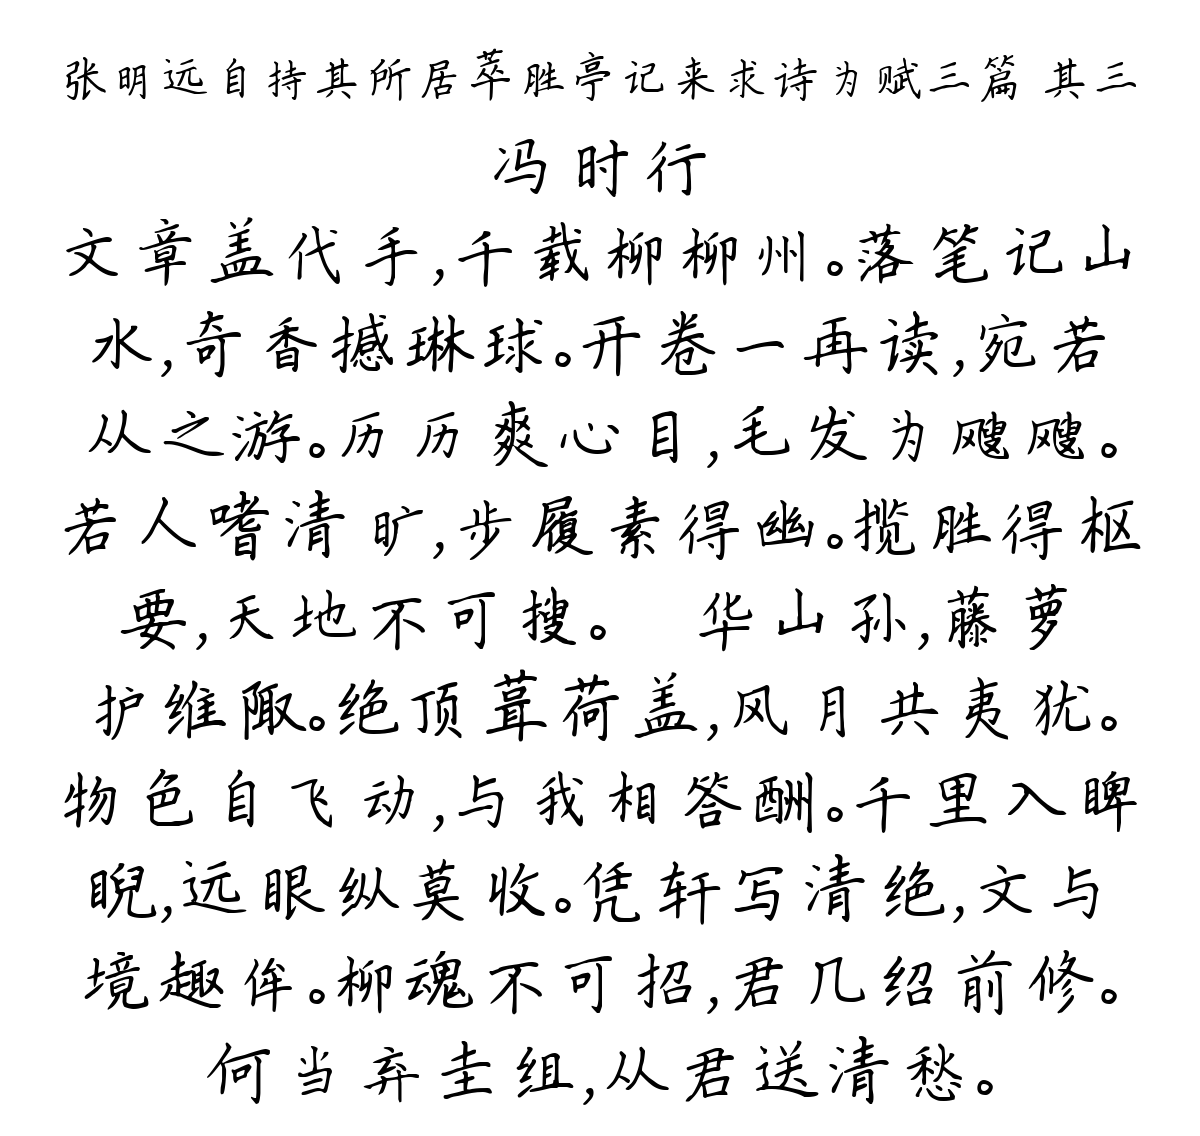 张明远自持其所居萃胜亭记来求诗为赋三篇 其三
冯时行
文章盖代手,千载柳柳州。落笔记山
水,奇香撼琳球。开卷一再读,宛若
从之游。历历爽心目,毛发为飕飕。
若人嗜清旷,步履素得幽。揽胜得枢
要,天地不可搜。 华山孙,藤萝
护维陬。绝顶葺荷盖,风月共夷犹。
物色自飞动,与我相答酬。千里入睥
睨,远眼纵莫收。凭轩写清绝,文与
境趣侔。柳魂不可招,君几绍前修。
何当弃圭组,从君送清愁。